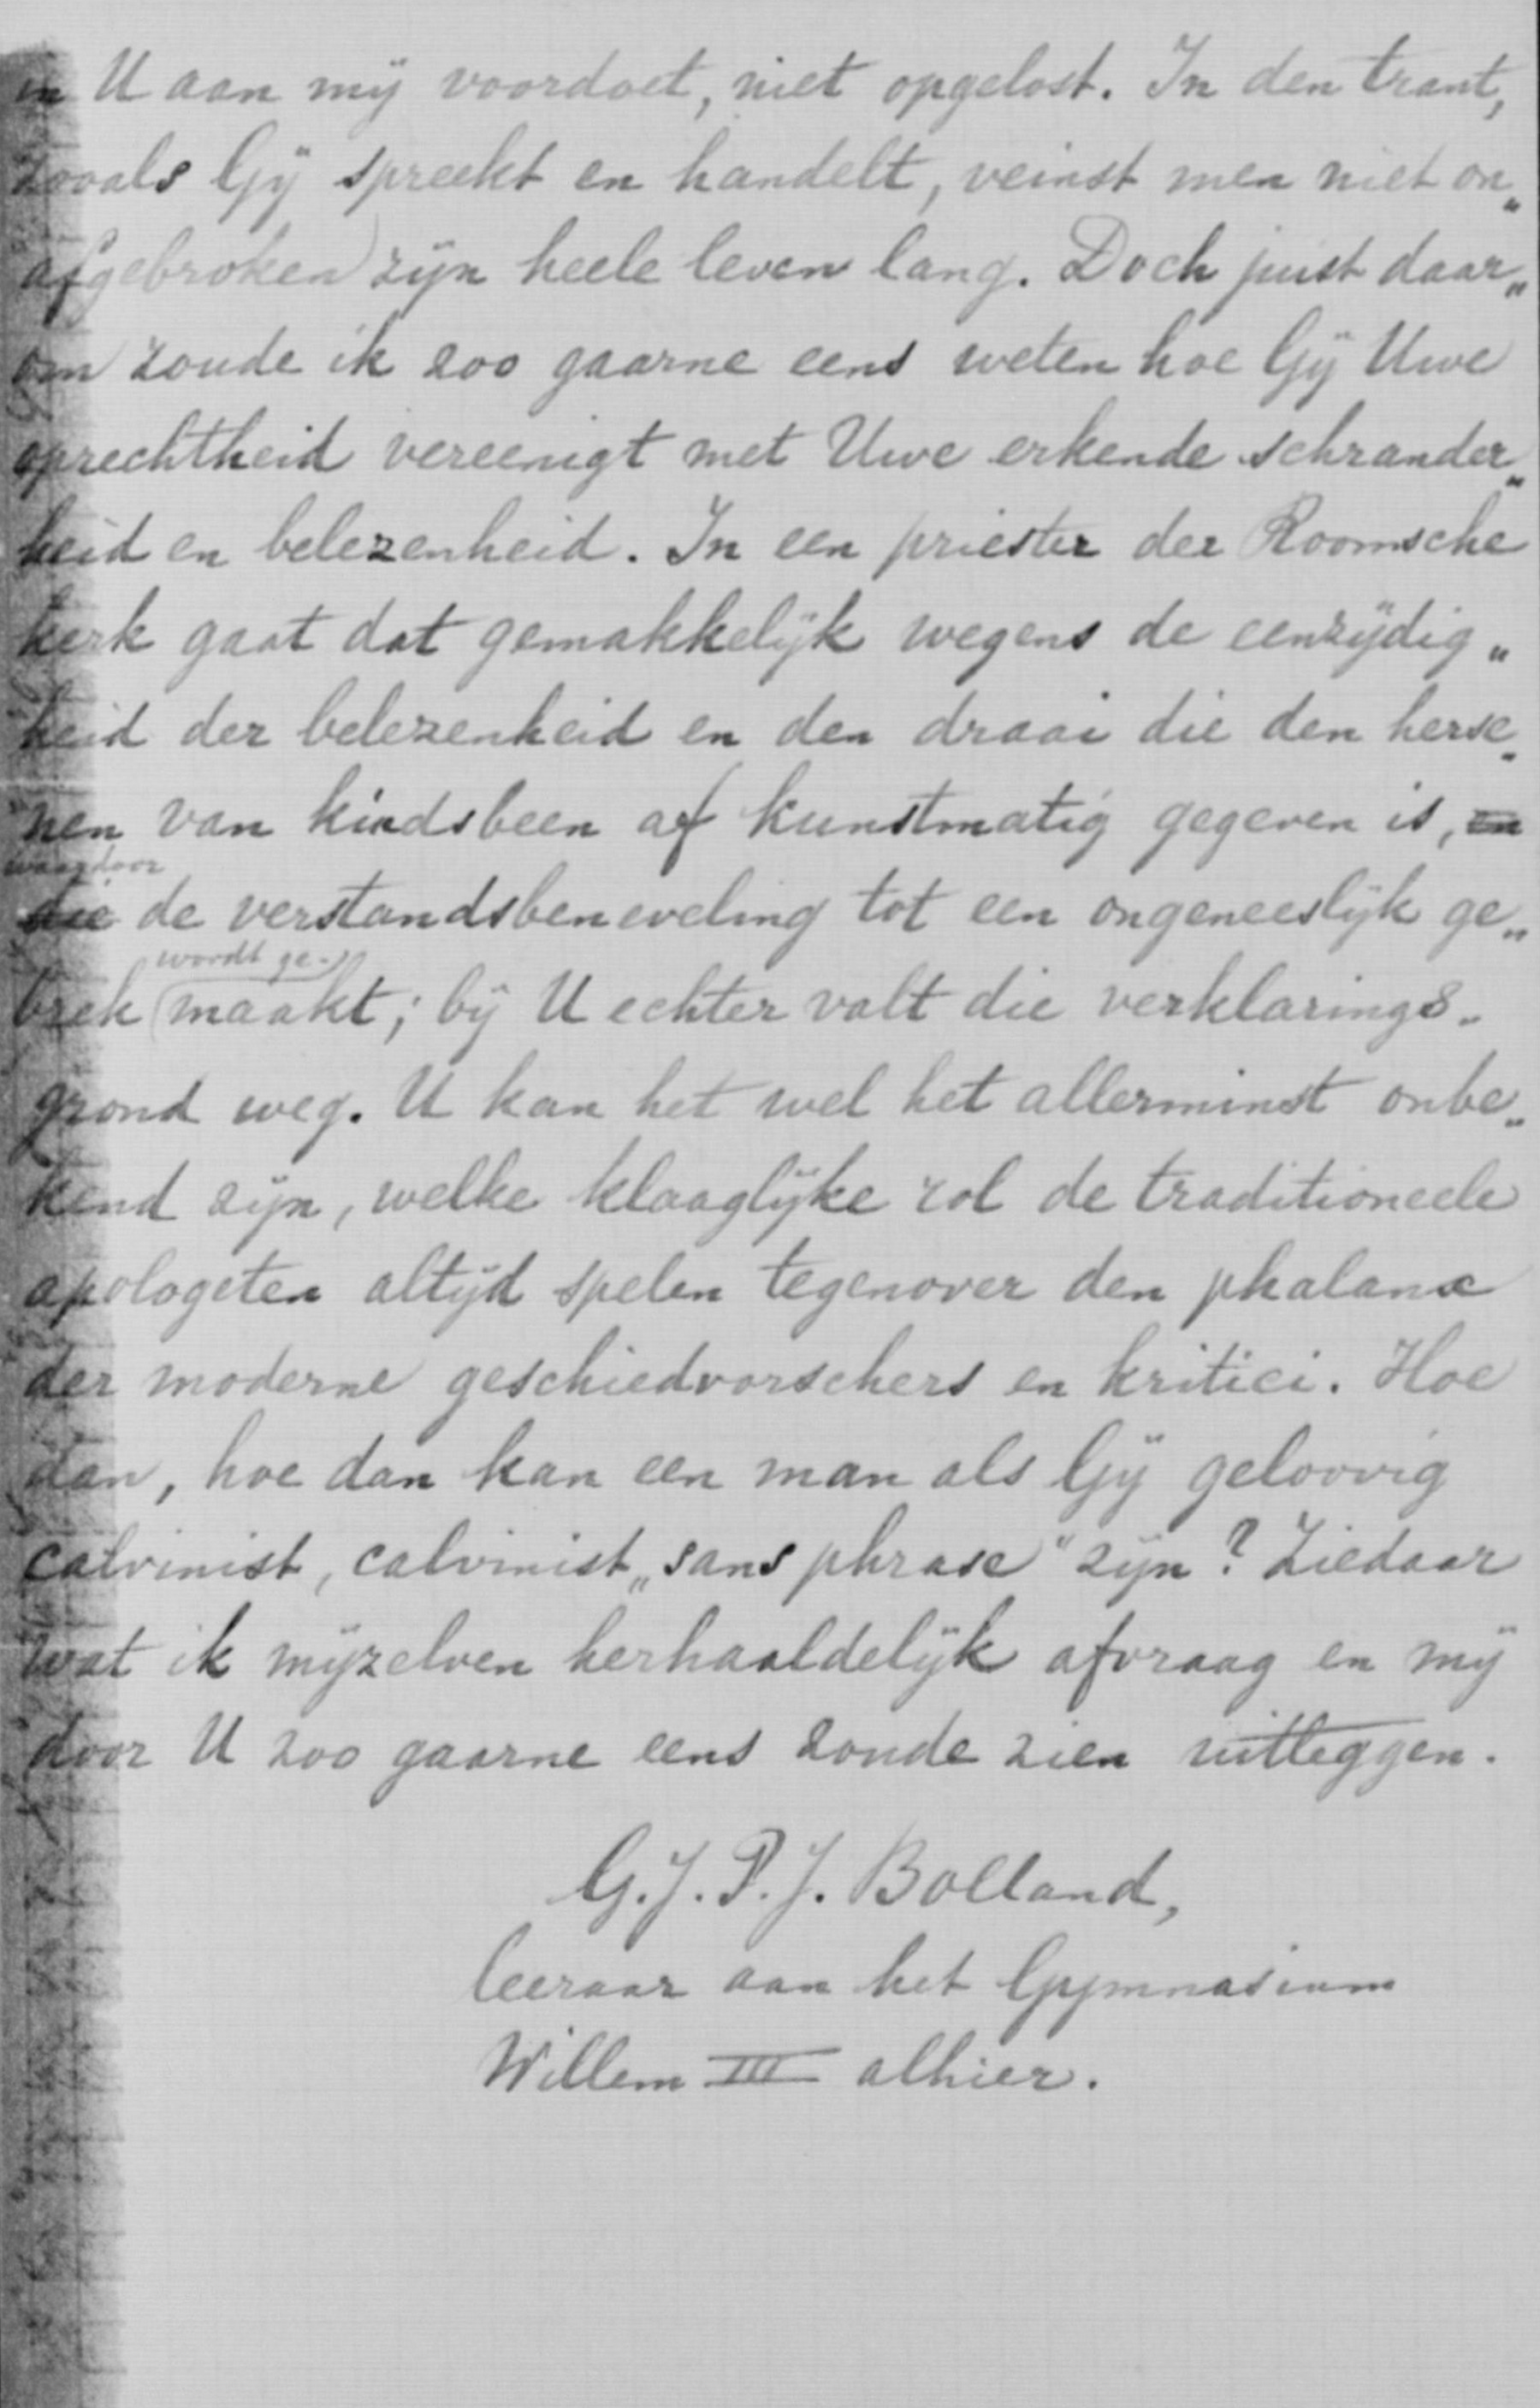 in U aan mij voordoet, niet opgelost. In den trant,
zooals Gij spreekt en handelt, veinst men niet on„
afgebroken zijn heele leven lang. Doch juist daar„
om zoude ik zoo gaarne eens weten hoe Gij Uwe
oprechtheid vereenigt met Uwe erkende schrander„
heid en belezenheid. In een priester der Roomsche
kerk gaat dat gemakkelijk wegens de eenzijdig„
heid der belezenheid en den draai die den herse„
nen van kindsbeen af kunstmatig gegeven is, en
waardoor
die de verstandsbeneveling tot een ongeneeslijk ge„
wordt ge-
brek maakt; bij U echter valt die verklarings„
grond weg. U kan het wel het allerminst onbe„
kend zijn, welke klaaglijke rol de traditioneele
apologeten altijd spelen tegenover den phalanx
der moderne geschiedvorschers en kritici. Hoe
dan, hoe dan kan een man als Gij geloovig
calvinist, calvinist „sans phrase" zijn? Ziedaar
wat ik mijzelven herhaaldelijk afvraag en mij
door U zoo gaarne eens zoude zien uitleggen.
G. J. P. J. Bolland,
leeraar aan het Gymnasium
Willem III alhier.